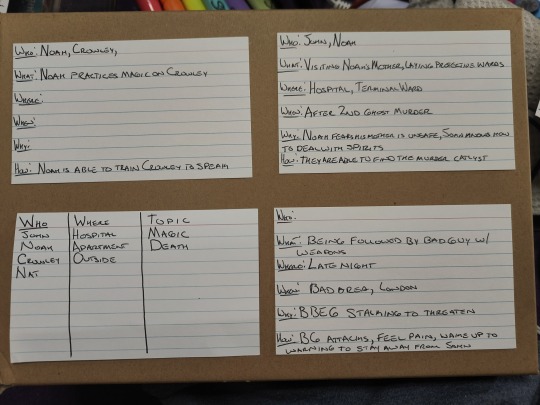 Who: Noah, Crowley,
What: Noah practices magic on Crowley
Where:
When:
Why:
How: Noah is able to train Crowley to speak
Who: John, Noah
What: Visiting Noah's mother, laying protective wards
Where: Hospital, Terminal Ward
When: After 2nd ghost murder
Why: Noah fears his mother is unsafe, John knows how
to deal with spirits
How: They are able to find the murder catlyst
Who Where Topic
John Hospital Magic
Noah Apartment Death
Crowley Outside
Nat
Who:
What: Being followed by bad guy w/
weapons
Where: Late night
When: Bad area, London
Why: BBEG stalking to threaten
How: BG attacks, feel pain, wake up to
warning to stay away from John